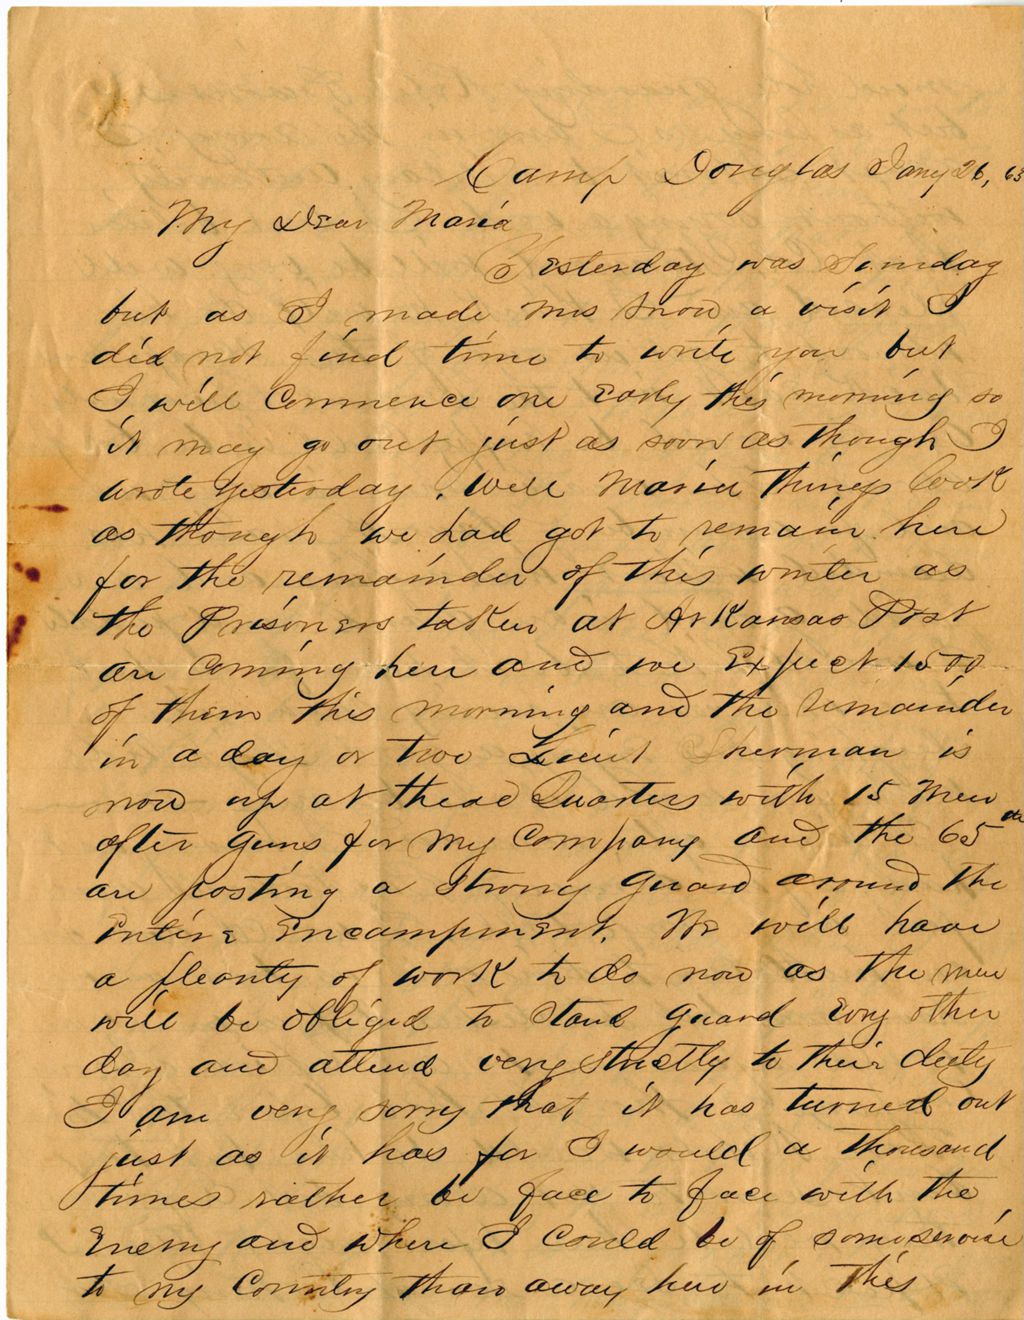 Camp Douglas Jany 26, 63
My Dear Maria
Yesterday was Sunday
but as I made Mrs Snow a visit I
did not find time to write you but
I will commence one Early this morning so
it may go out just as soon as though I
wrote yesterday. Well Maria things look
as though we had got to remain here
for the remainder of this winter as
the Prisoners taken at Arkansas Post
are coming here and we Expect 1500
of them this morning and the remainder
in a day or two Lieut Sherman is
now up at Head Quarters with 15 men
after guns for my Company and the 65th
are posting a strong guard around the
Entire Encampment. We will have
a pleanty of work to do now as the men
will be obliged to stand guard Evry other
day and attend very strictly to their duty
I am very sorry that it has turned out
just as it has for I would a thousand
times rather be face to face with the
Enemy and where I could be of some servise
to my Country than away here in this